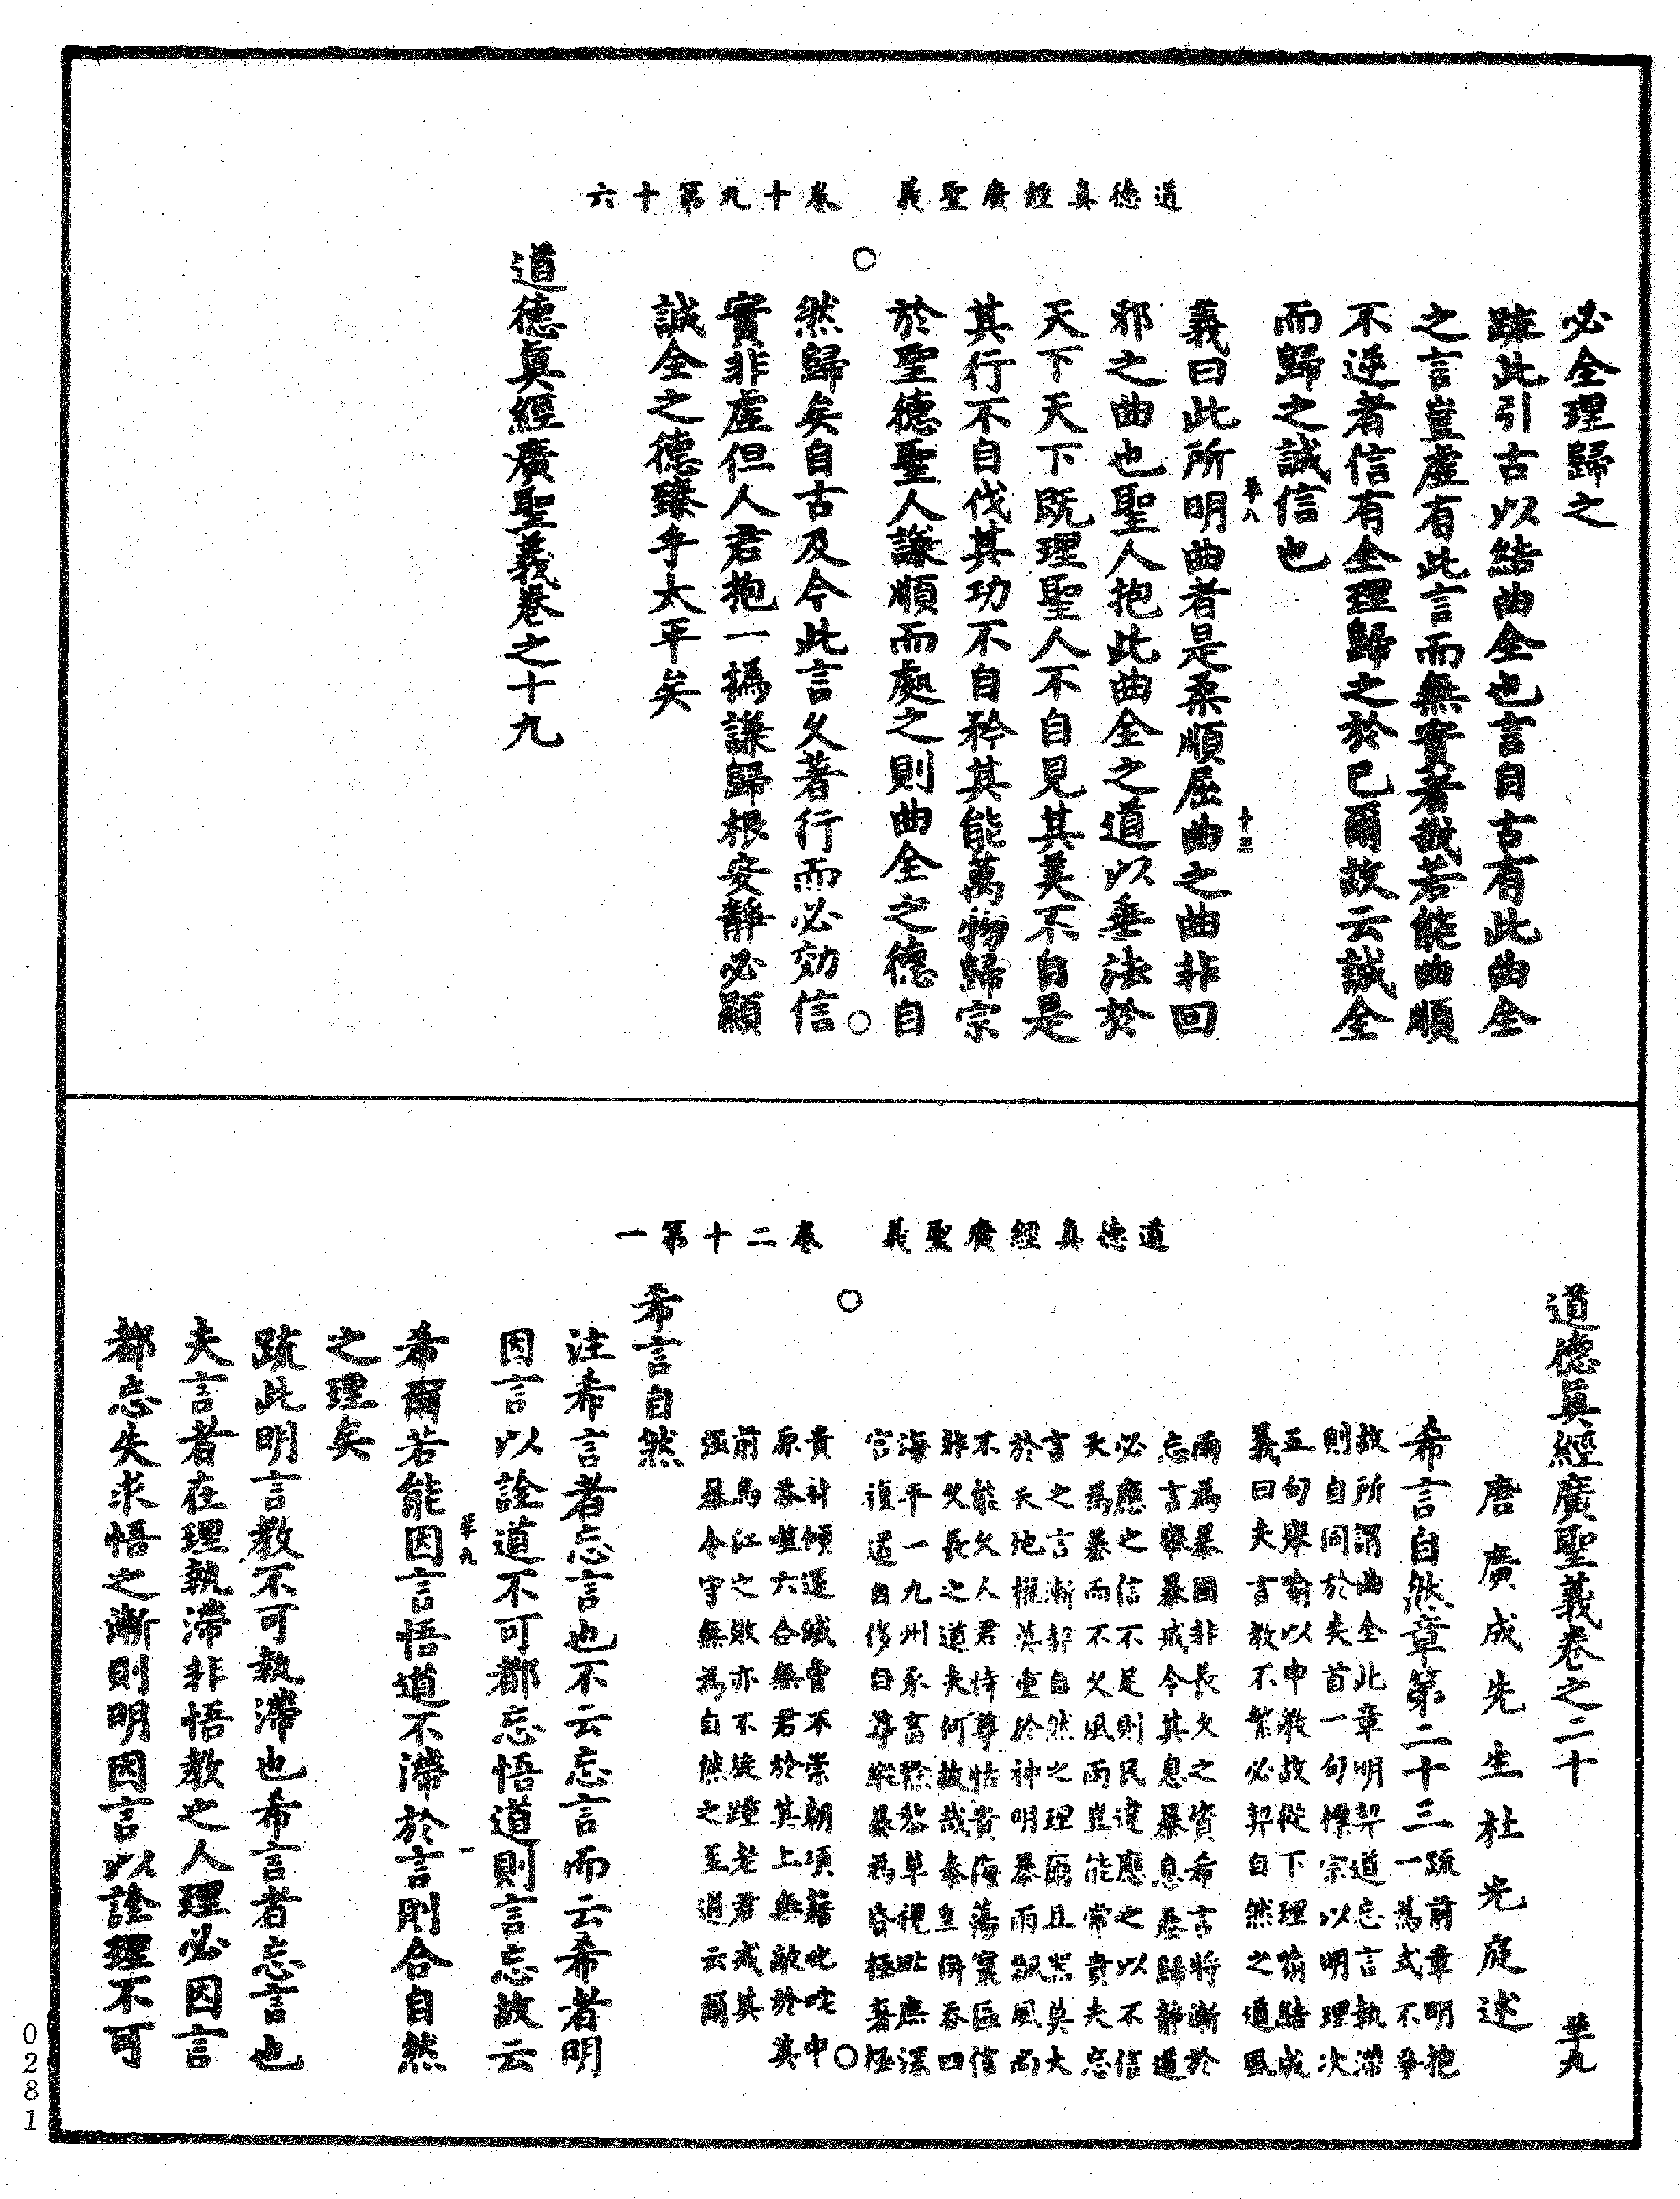 道德真經廣聖義　卷十九第十六
必全理歸之
疏此引古以結曲全也言自古有此曲全
之言豈虛有此言而無實者哉若能曲順
不逆者信有全理歸之於己爾故云誠全
而歸之誠信也
義曰此所明曲者是柔順屈曲之曲非回
邪之曲也聖人抱此曲全之道以垂法於
天下天下既理聖人不自見其美不自是
其行不自伐其功不自矜其能萬物歸宗
於聖德聖人謙順而處之則曲全之德自
然歸矣自古及今此言久著行而必効信
實非虛但人君抱一撝謙歸根安靜必顯
誠全之德臻乎太平矣
道德真經廣聖義卷之十九
道德真經廣聖義　卷二十第一
道德真經廣聖義卷之二十
唐廣成先生杜光庭述
希言自然章第二十三
疏前章明抱
一為式不爭
故所謂曲全此章明契道忘言執滯
則自同於失首一句摽宗以明理次
五句舉喻以申教故從下理喻結成
義曰夫言教不繁必契自然之道風
雨為暴固非長久之資希言將漸於
忘言舉暴戒令其息暴息暴歸靜道
必應之信不足則民違應之以不信
天為暴而不久風雨豈能常貴夫忘
言之言漸契自然之理爾且黑莫大
於天地權莫重於神明暴雨飄風尚
不能久人君恃尊怙貴海蕩寰區信
非久長之道夫何故哉秦皇併吞四
海平一九州承富黔黎草視甿庶深
宮復道自侈日尊縱暴為昏極奢極
貴神傾運蹙曾不崇朝項籍叱吒中
原吞噬六合無君於其上無敵於其
前烏江之敗亦不旋踵老君戒其
强暴令守無為自然之至道云爾
希言自然
注希言者忘言也不云忘言而云希者明
因言以詮道不可都忘悟道則言忘故云
希爾若能因言悟道不滯於言則合自然
之理矣
疏此明言教不可執滯也希言者忘言也
夫言者在理執滯非悟教之人理必因言
都忘失求悟之漸則明因言以詮理不可
0281